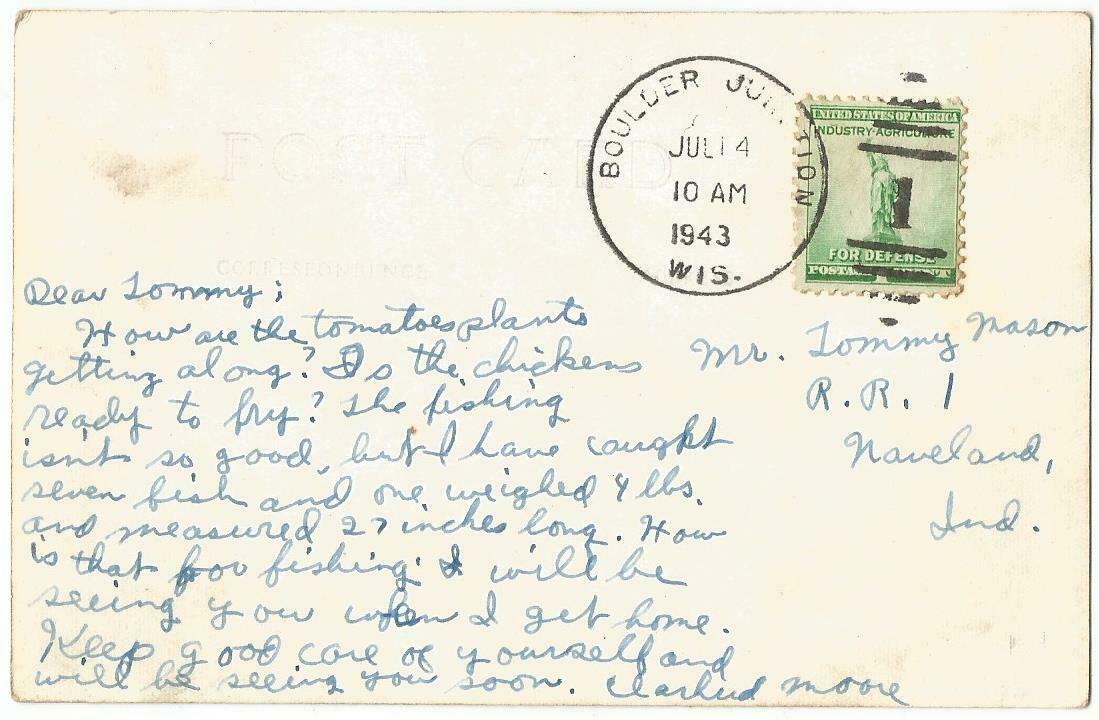 POST CARD
CORRESPONDENCE
BOULDER JUNCTION
JUL 14
10 AM
1943
WIS.
UNITED STATES OF AMERICA
INDUSTRY-AGRICULTURE
1
FOR DEFENSE
POSTAGE
Dear Tommy;
How are the tomatoes plants
getting along? Is the chickens
ready to fry? The fishing
isnt so good, but I have caught
seven fish and one weighed 4 lbs.
and measured 27 inches long. How
is that for fishing. I will be
seeing you when I get home.
Keep good care of yourself and
will be seeing you soon. Moore
Mr. Tommy Mason
R. R. 1
Waveland,
Ind.